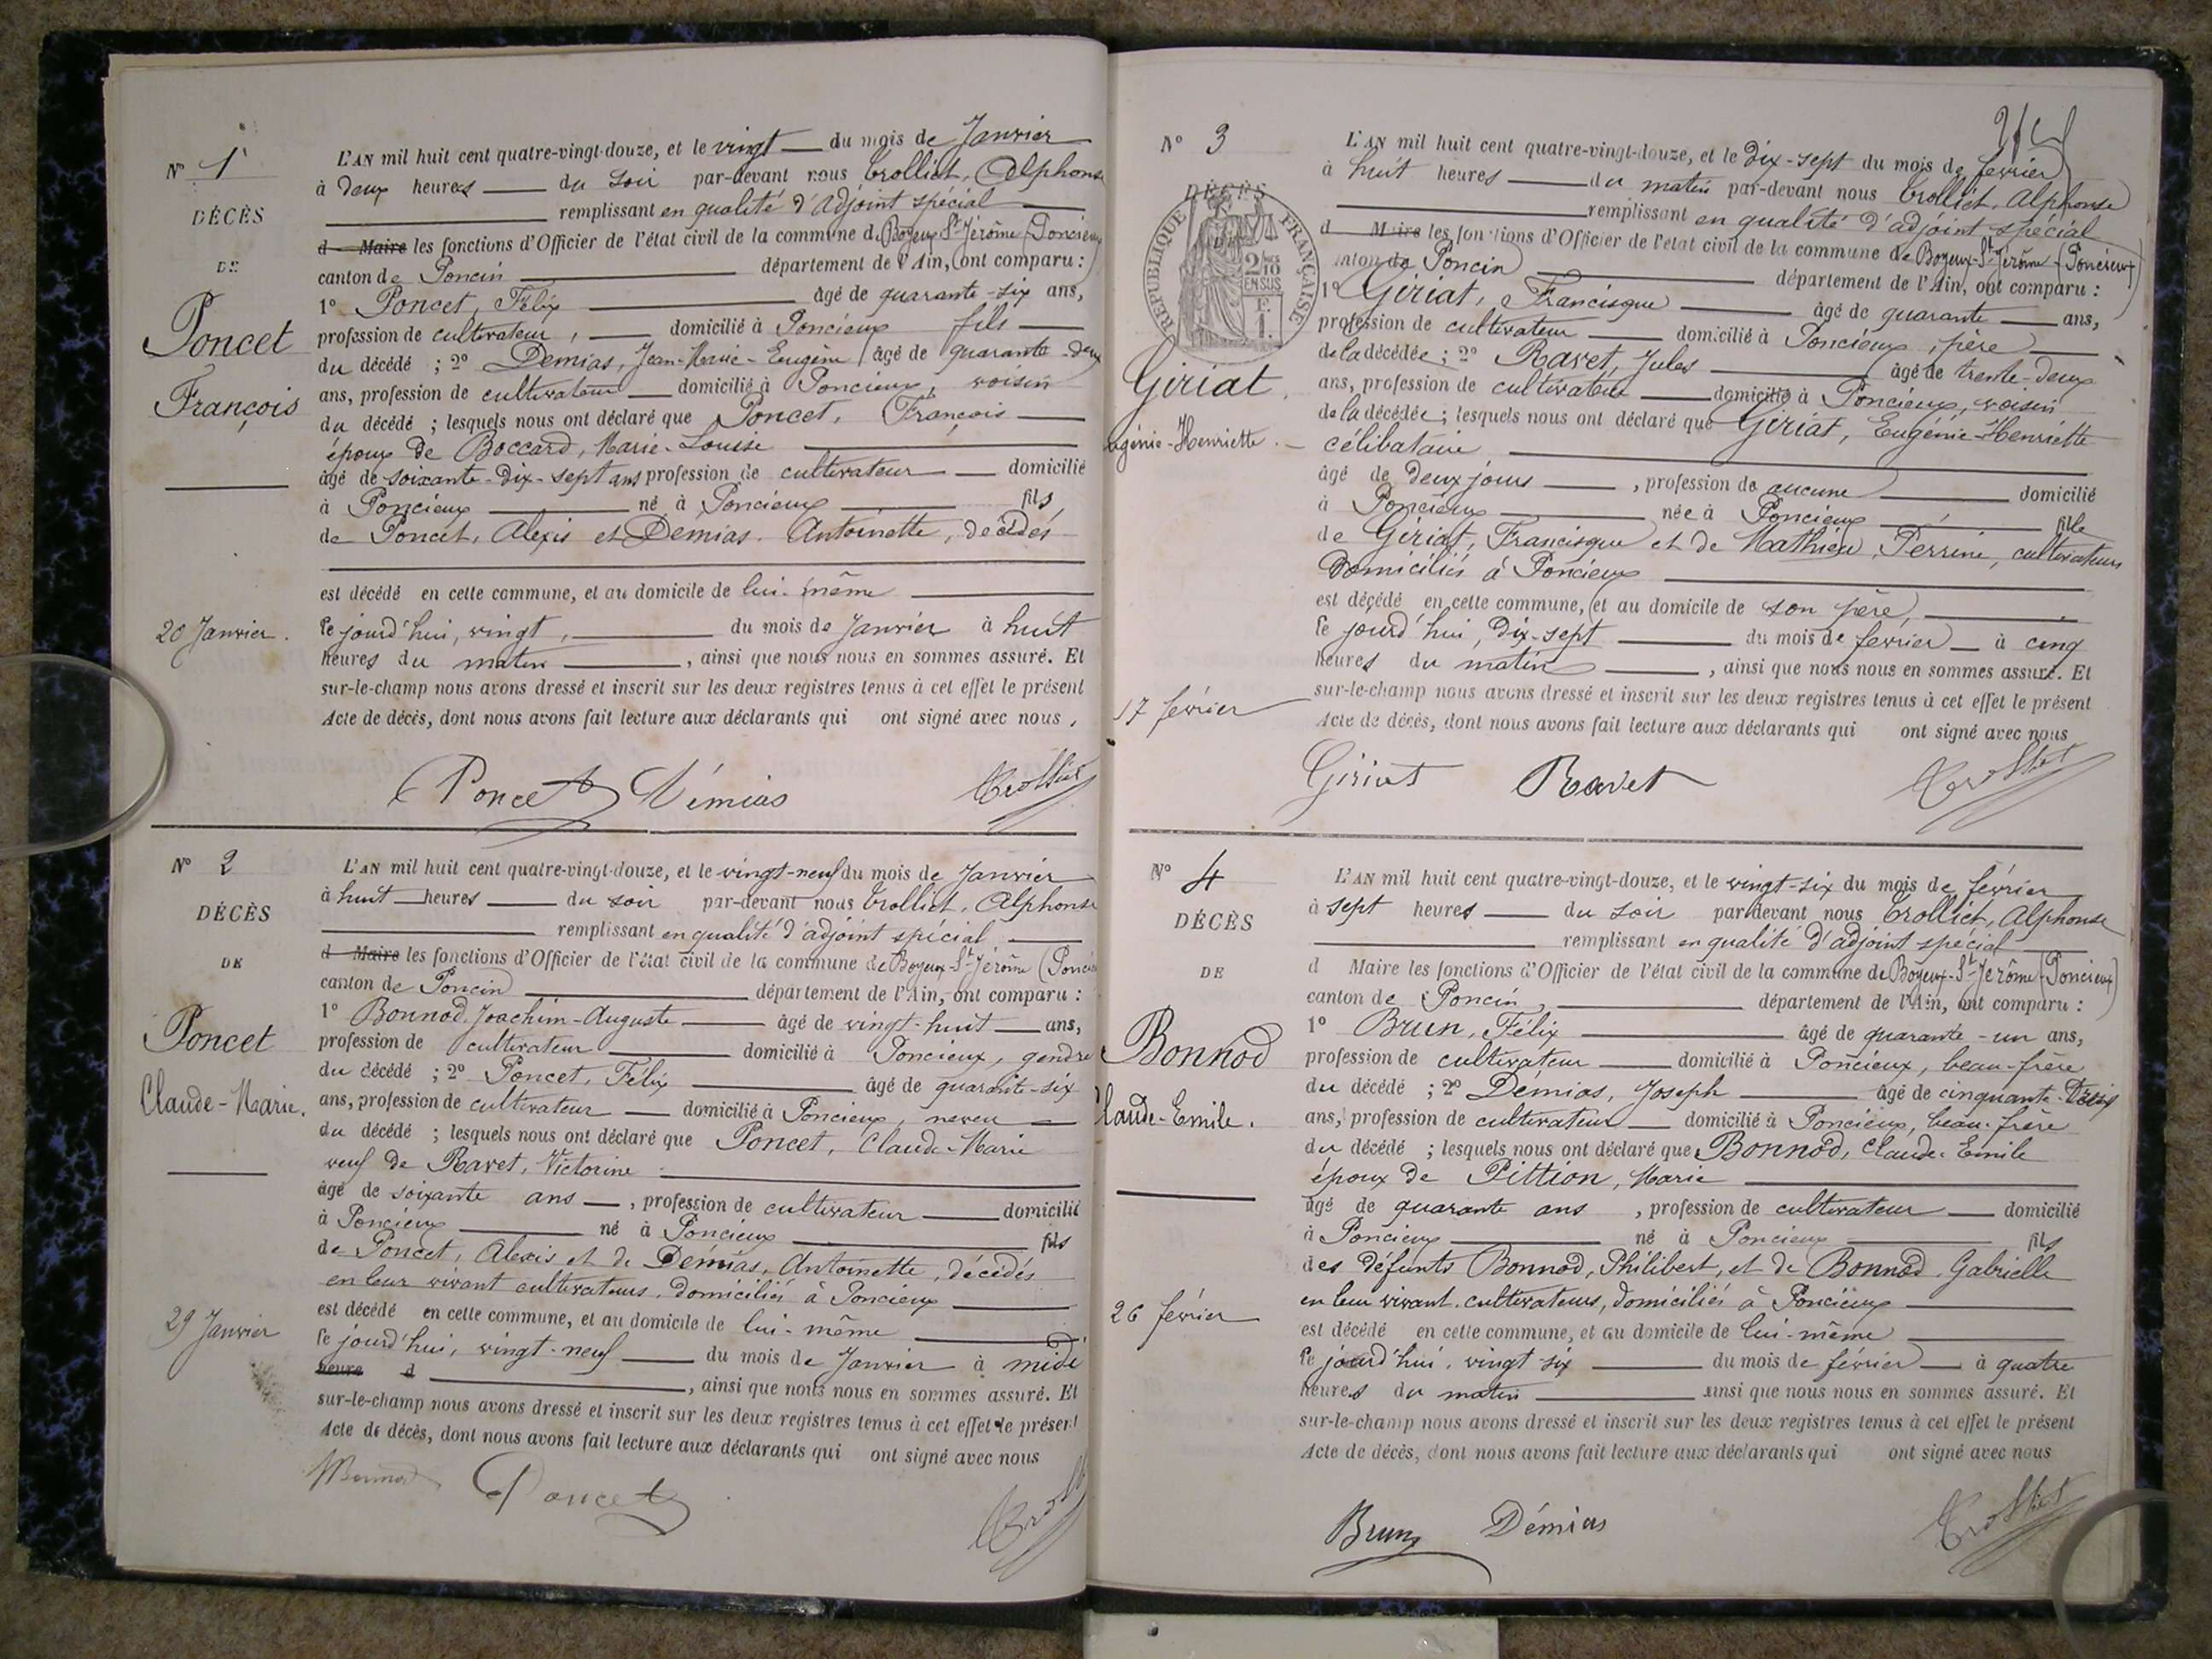 N° 1
DÉCÈS
DE
Poncet
François
20 Janvier.
L'AN mil huit cent quatre-vingt-douze, et le vingt du mois de Janvier
à deux heures du soir par-devant nous Trolliet, Alphonse
remplissant en qualité d'adjoint spécial
d Maire les fonctions d'Officier de l'état civil de la commune de Boyeux-St-Jérôme (Poncieux)
canton de Poncin département de l'Ain, ont comparu :
1° Poncet, Félix âgé de quarante-six ans,
profession de cultivateur, domicilié à Poncieux fils
du décédé ; 2° Demias, Jean-Marie-Eugène âgé de quarante-deux
ans, profession de cultivateur domicilié à Poncieux, voisin
du décédé ; lesquels nous ont déclaré que Poncet, François
époux de Boccard, Marie-Louise
âgé de soixante-dix-sept ans profession de cultivateur domicilié
à Poncieux né à Poncieux fils
de Poncet, Alexis et Demias, Antoinette, décédés
est décédé en cette commune, et au domicile de lui-même
le jourd'hui, vingt, du mois de Janvier à huit
heures du matin, ainsi que nous nous en sommes assuré. Et
sur-le-champ nous avons dressé et inscrit sur les deux registres tenus à cet effet le présent
Acte de décès, dont nous avons fait lecture aux déclarants qui ont signé avec nous.
Poncet Démias Trolliet
N° 2
DÉCÈS
DE
Poncet
Claude-Marie.
29 Janvier
L'AN mil huit cent quatre-vingt-douze, et le vingt-neuf du mois de Janvier
à huit heures du soir par-devant nous Trolliet, Alphonse
remplissant en qualité d'adjoint spécial
d Maire les fonctions d'Officier de l'état civil de la commune de Boyeux-St-Jérôme (Poncieux
canton de Poncin département de l'Ain, ont comparu :
1° Bonnod, Joachim-Auguste âgé de vingt-huit ans,
profession de cultivateur domicilié à Poncieux, gendre
du décédé ; 2° Poncet, Félix âgé de quarante-six
ans, profession de cultivateur domicilié à Poncieux, neveu
du décédé ; lesquels nous ont déclaré que Poncet, Claude-Marie
veuf de Ravet, Victorine
âgé de soixante ans, profession de cultivateur domicilié
à Poncieux né à Poncieux fils
de Poncet, Alexis et de Démias, Antoinette, décédés
en leur vivant cultivateurs, domiciliés à Poncieux
est décédé en cette commune, et au domicile de lui-même
le jourd'hui, vingt-neuf du mois de Janvier à midi
heure d, ainsi que nous nous en sommes assuré. Et
sur-le-champ nous avons dressé et inscrit sur les deux registres tenus à cet effet le présent
Acte de décès, dont nous avons fait lecture aux déclarants qui ont signé avec nous
Bonnod Poncet Trolliet
N° 3
DÉCÈS
DE
RÉPUBLIQUE FRANÇAISE
2/10 EN SUS
Giriat.
Eugénie-Henriette.
17 février
L'AN mil huit cent quatre-vingt-douze, et le dix-sept du mois de février
à huit heures du matin par-devant nous Trolliet, Alphonse
remplissant en qualité d'adjoint spécial
d Maire les fonctions d'Officier de l'état civil de la commune de Boyeux-St-Jérôme (Poncieux)
canton de Poncin département de l'Ain, ont comparu :
1° Giriat, Francisque âgé de quarante ans,
profession de cultivateur domicilié à Poncieux, père
de la décédée ; 2° Ravet, Jules âgé de trente-deux
ans, profession de cultivateur domicilié à Poncieux, voisin
de la décédée ; lesquels nous ont déclaré que Giriat, Eugénie-Henriette
célibataire
âgé de deux jours, profession de aucune domicilié
à Poncieux née à Poncieux fille
de Giriat, Francisque et de Mathieu, Perrine, cultivateurs
domiciliés à Poncieux
est décédé en cette commune, et au domicile de son père,
le jourd'hui, dix-sept du mois de février à cinq
heures du matin, ainsi que nous nous en sommes assuré. Et
sur-le-champ nous avons dressé et inscrit sur les deux registres tenus à cet effet le présent
Acte de décès, dont nous avons fait lecture aux déclarants qui ont signé avec nous
Giriat Ravet Trolliet
N° 4
DÉCÈS
DE
Bonnod
Claude-Emile.
26 février
L'AN mil huit cent quatre-vingt-douze, et le vingt-six du mois de février
à sept heures du soir par-devant nous Trolliet, Alphonse
remplissant en qualité d'adjoint spécial
d Maire les fonctions d'Officier de l'état civil de la commune de Boyeux-St-Jérôme (Poncieux)
canton de Poncin, département de l'Ain, ont comparu :
1° Brun, Félix âgé de quarante-un ans,
profession de cultivateur domicilié à Poncieux, beau-frère
du décédé ; 2° Démias, Joseph âgé de cinquante-
ans, profession de cultivateur domicilié à Poncieux, beau-frère
du décédé ; lesquels nous ont déclaré que Bonnod, Claude-Emile
époux de Pittion, Marie
âgé de quarante ans, profession de cultivateur domicilié
à Poncieux né à Poncieux fils
des défunts Bonnod, Philibert, et de Bonnod, Gabrielle
en leur vivant cultivateurs, domiciliés à Poncieux
est décédé en cette commune, et au domicile de lui-même
le jourd'hui, vingt-six du mois de février à quatre
heures du matin ainsi que nous nous en sommes assuré. Et
sur-le-champ nous avons dressé et inscrit sur les deux registres tenus à cet effet le présent
Acte de décès, dont nous avons fait lecture aux déclarants qui ont signé avec nous
Brun Démias Trolliet